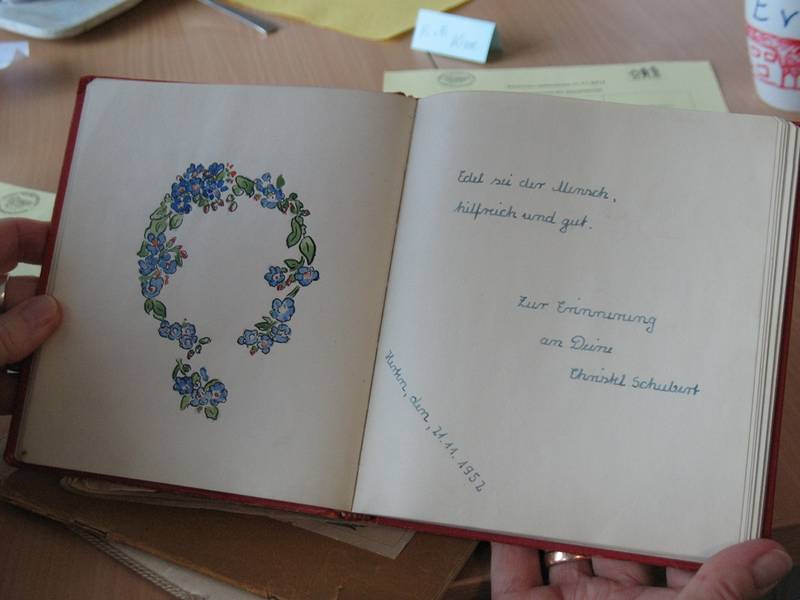 Edel sei der Mensch,
hilfreich und gut.
Zur Erinnerung
an Deine
Christel Schubert
den, 21.11.1952